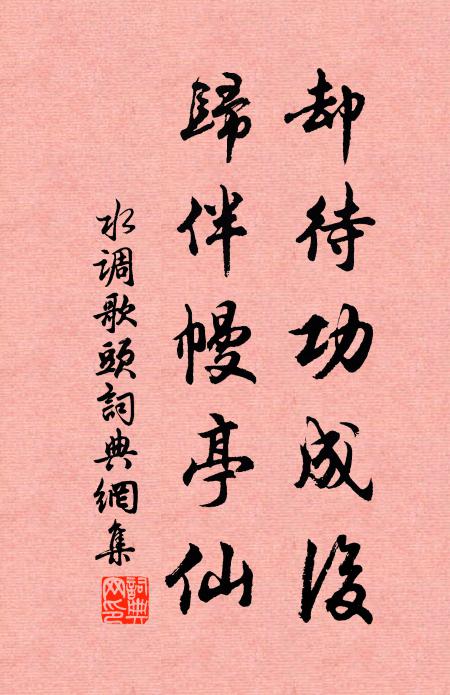 却待功成後
歸伴幔亭仙
水调歌頭詞典網集
詞典網印